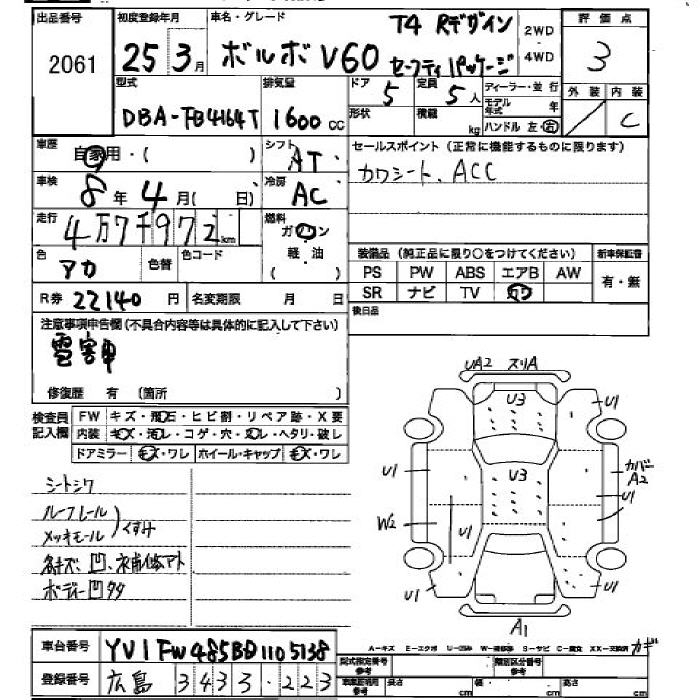 出品番号
2061
初度登録年月
25 3月
車名・グレード
ボルボ V60
T4 Rデザイン
セーフティパッケージ
2WD
4WD
評価点
3
外装 内装
／ C
型式
DBA-FB4164T
排気量
1600 cc
ドア
5
定員
5 人
形状
積載
kg
ディーラー・並行
モデル年式 年
ハンドル 左・右
車歴
自家用・( )
シフト
AT
車検
8年 4月( 日)
冷房
AC
走行
4万7千972km
燃料
ガソリン
軽・油
( )
色
アカ
色替
色コード
R券 22140 円
名変期限 月 日
セールスポイント (正常に機能するものに限ります)
カワシート、ACC
装備品 (純正品に限り○をつけてください)
新車保証書
PS PW ABS エアB AW
SR ナビ TV カワ
有・無
後日品
注意事項申告欄(不具合内容等は具体的に記入して下さい)
雹害車
修復歴 有 (箇所 )
検査員記入欄
FW キズ・飛石・ヒビ割・リペア跡・X要
内装 キズ・汚レ・コゲ・穴・スレ・ヘタリ・破レ
ドアミラー キズ・ワレ ホイール・キャップ キズ・ワレ
シートシワ
ルーフレール
メッキモール
くすみ
各キズ、凹、補修アト
ボディー凹タタ
UA2 スリA
U3
U1
U1
U3
カバーA2
U1
W2
U1
U1
U1
A1
車台番号
YV1FW485BD1105138
登録番号
広島 343 ・223
A-キズ E-エクボ U-凹み W-補修跡 S-サビ C-腐食 XX-交換済 カギ
型式指定番号
参考
類別区分番号
参考
車庫証明用
参考
長さ
cm
幅
cm
高さ
cm